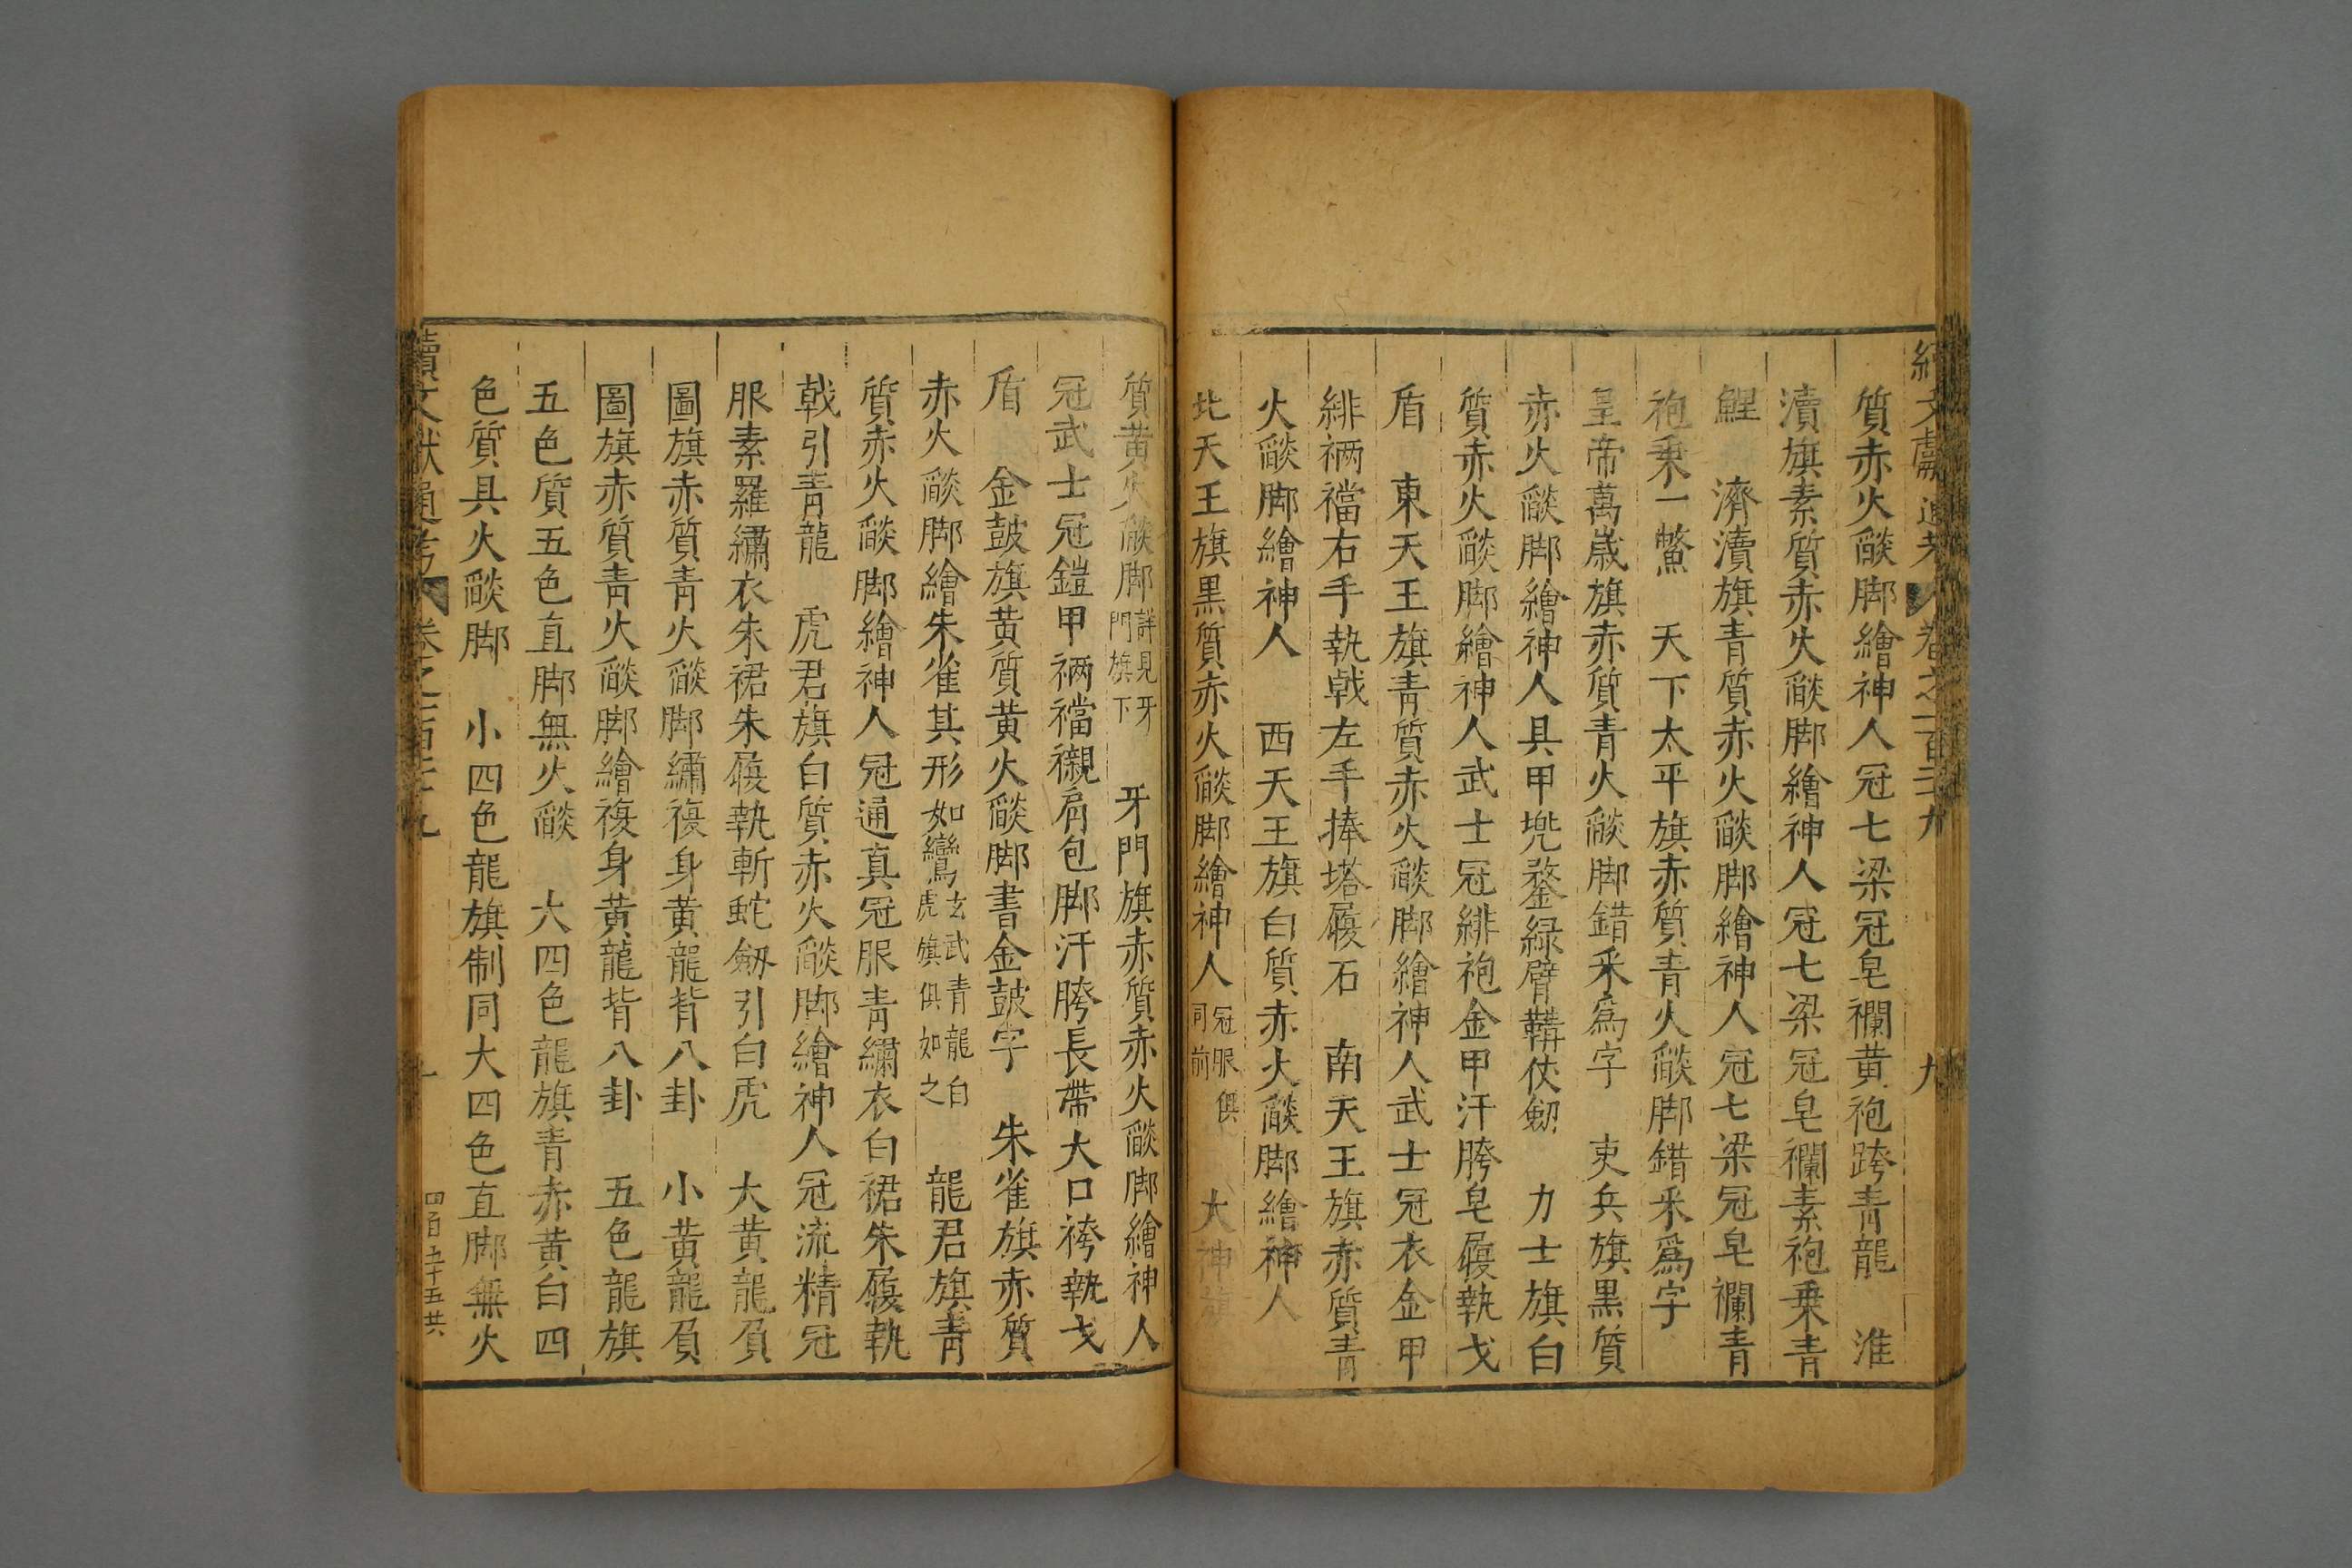 續文獻通考 卷之一百二十九 九
質赤火𦦨脚繪神人冠七梁冠皂襴黄袍跨青龍 淮
瀆旗素質赤火𦦨脚繪神人冠七梁冠皂襴素袍乗青
鯉 濟瀆旗青質赤火𦦨脚繪神人冠七梁冠皂襴青
袍乗一鱉 天下太平旗赤質青火𦦨脚錯釆爲字
皇帝萬歲旗赤質青火𦦨脚錯釆爲字 吏兵旗黒質
赤火𦦨脚繪神人具甲兠鍪緑臂鞲仗劒 力士旗白
質赤火𦦨脚繪神人武士冠緋袍金甲汗胯皂履執戈
盾 東天王旗青質赤火𦦨脚繪神人武士冠衣金甲
緋裲襠右手執戟左手捧塔履石 南天王旗赤質青
火𦦨脚繪神人 西天王旗白質赤火𦦨脚繪神人
北天王旗黒質赤火𦦨脚繪神人冠服俱同前 大神旗
質黄火𦦨脚詳見牙門旗下 牙門旗赤質赤火𦦨脚繪神人
冠武士冠鎧甲裲襠襯肩包脚汗胯長帶大口袴執戈
盾 金鼓旗黄質黄火𦦨脚書金鼓字 朱雀旗赤質
赤火𦦨脚繪朱雀其形如鸞玄武青龍白虎旗俱如之 龍君旗青
質赤火𦦨脚繪神人冠通真冠服青繡衣白裙朱履執
戟引青龍 虎君旗白質赤火𦦨脚繪神人冠流精冠
服素羅繡衣朱裙朱履執斬蛇劒引白虎 大黄龍負
圖旗赤質青火𦦨脚繡複身黄龍背八卦 小黄龍負
圖旗赤質青火𦦨脚繪複身黄龍背八卦 五色龍旗
五色質五色直脚無火𦦨 大四色龍旗青赤黄白四
色質具火𦦨脚 小四色龍旗制同大四色直脚無火
續文獻通考 卷之一百二十九 十 四百五十五共